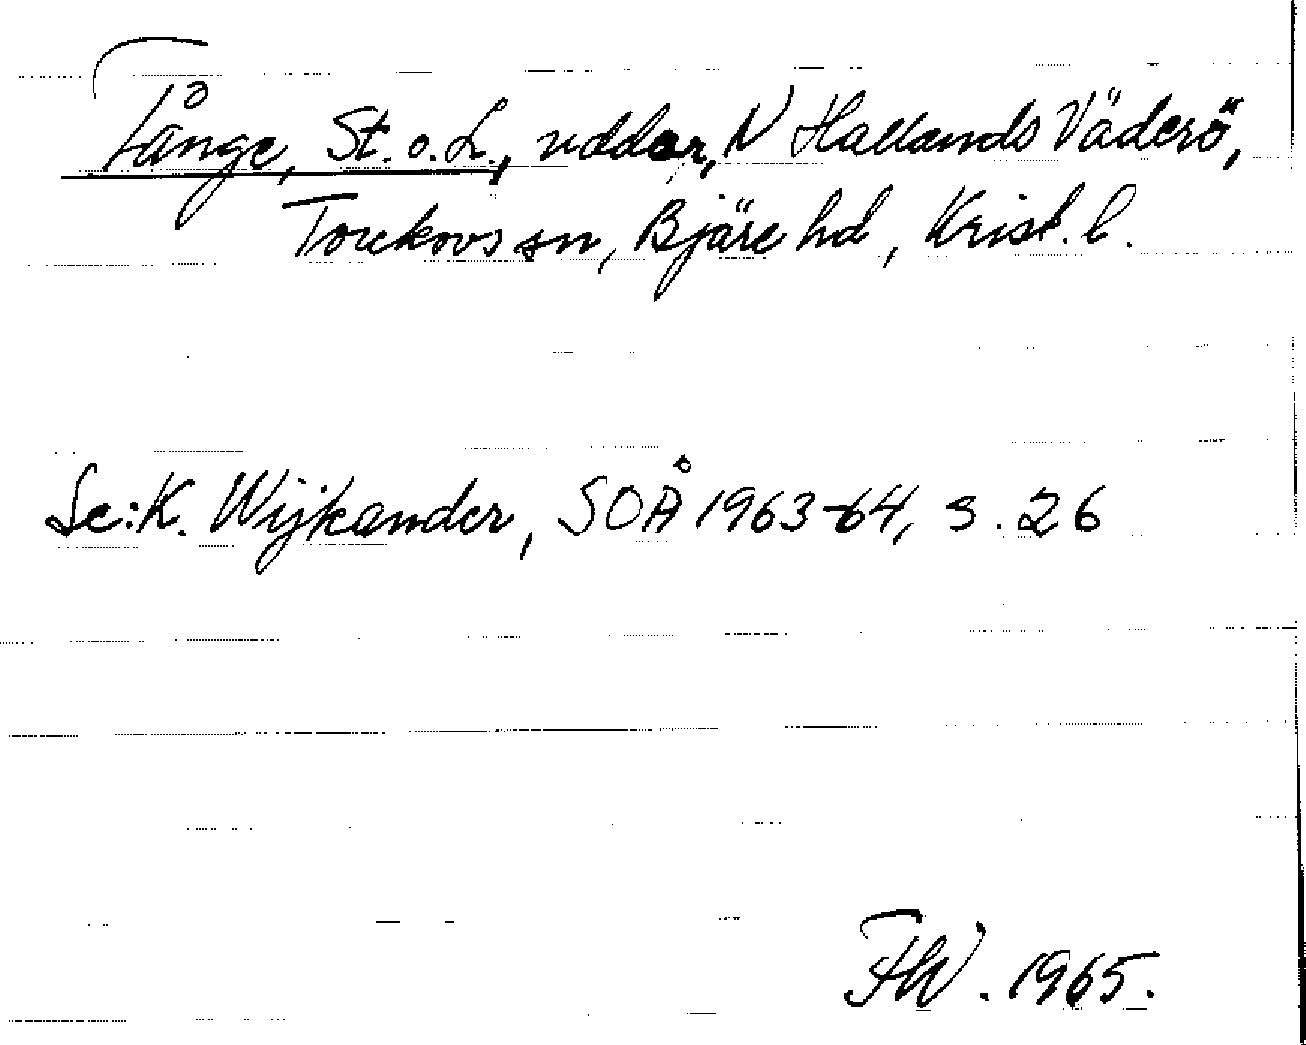 Fånge, St. o. L., uddar, N Hallands Väderö,
Torekovs sn, Bjäre hd, Krist. l.
Se: K. Wijkander, SOÅ 1963-64, s. 26
FHW. 1965.